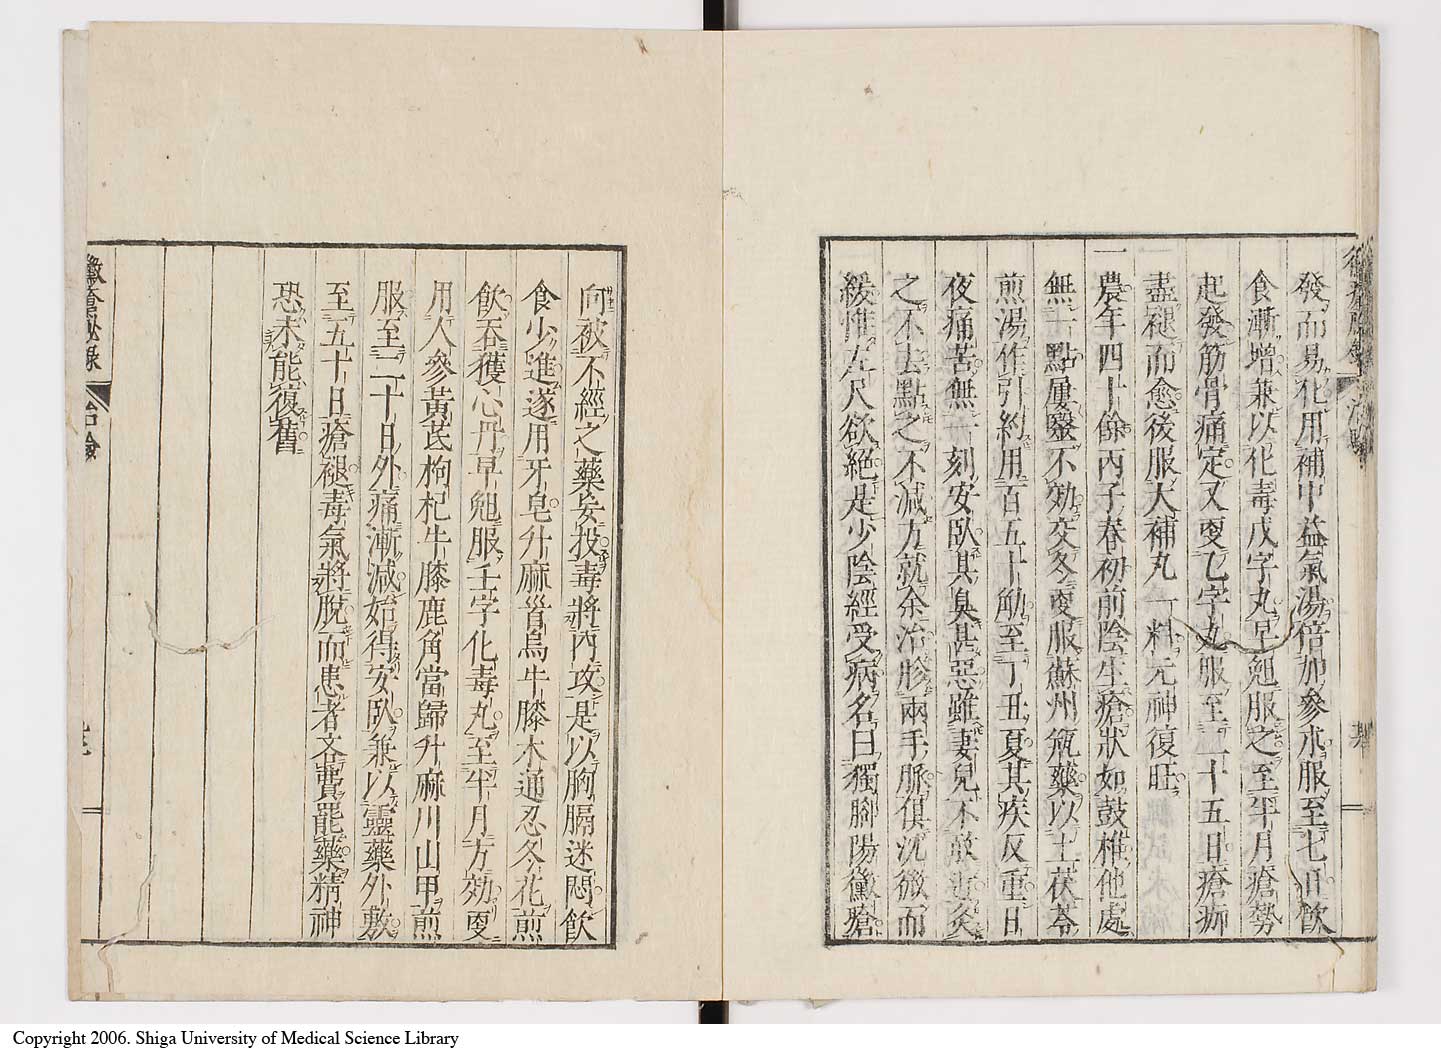 發而易化用補中益氣湯倍加參朮服至七日飮
食漸增兼以化毒戊字丸早𠒎服之至半月瘡勢
起發筋骨痛定又更乙字丸服至二十五日瘡痂
盡褪而愈後服大補丸一料元神復旺
一農年四十餘丙子春初前陰生瘡狀如鼓椎他處
無一點屢毉不効交冬更服蘇州瓶藥以土茯苓
煎湯作引約用百五十觔至丁丑夏其疾反重日
夜痛苦無一刻安臥其臭甚惡雖妻兒不敢近灸
之不去點之不減方就余治胗兩手脈俱沉微而
緩惟左尺欲絕是少陰經受病名曰獨腳陽黴瘡
向被不經之藥妄投毒將內攻是以胸膈迷悶飮
食少進遂用牙皂升麻䝨烏牛膝木通忍冬花煎
飮吞獲心丹早𠒎服壬字化毒丸至半月方効更
用人參黃芪枸杞牛膝鹿角當歸升麻川山甲煎
服至二十日外痛漸減始得安臥兼以靈藥外敷
至五十日瘡褪毒氣將脫而患者吝費罷藥精神
恐未能復舊
黴瘡祕錄 治驗